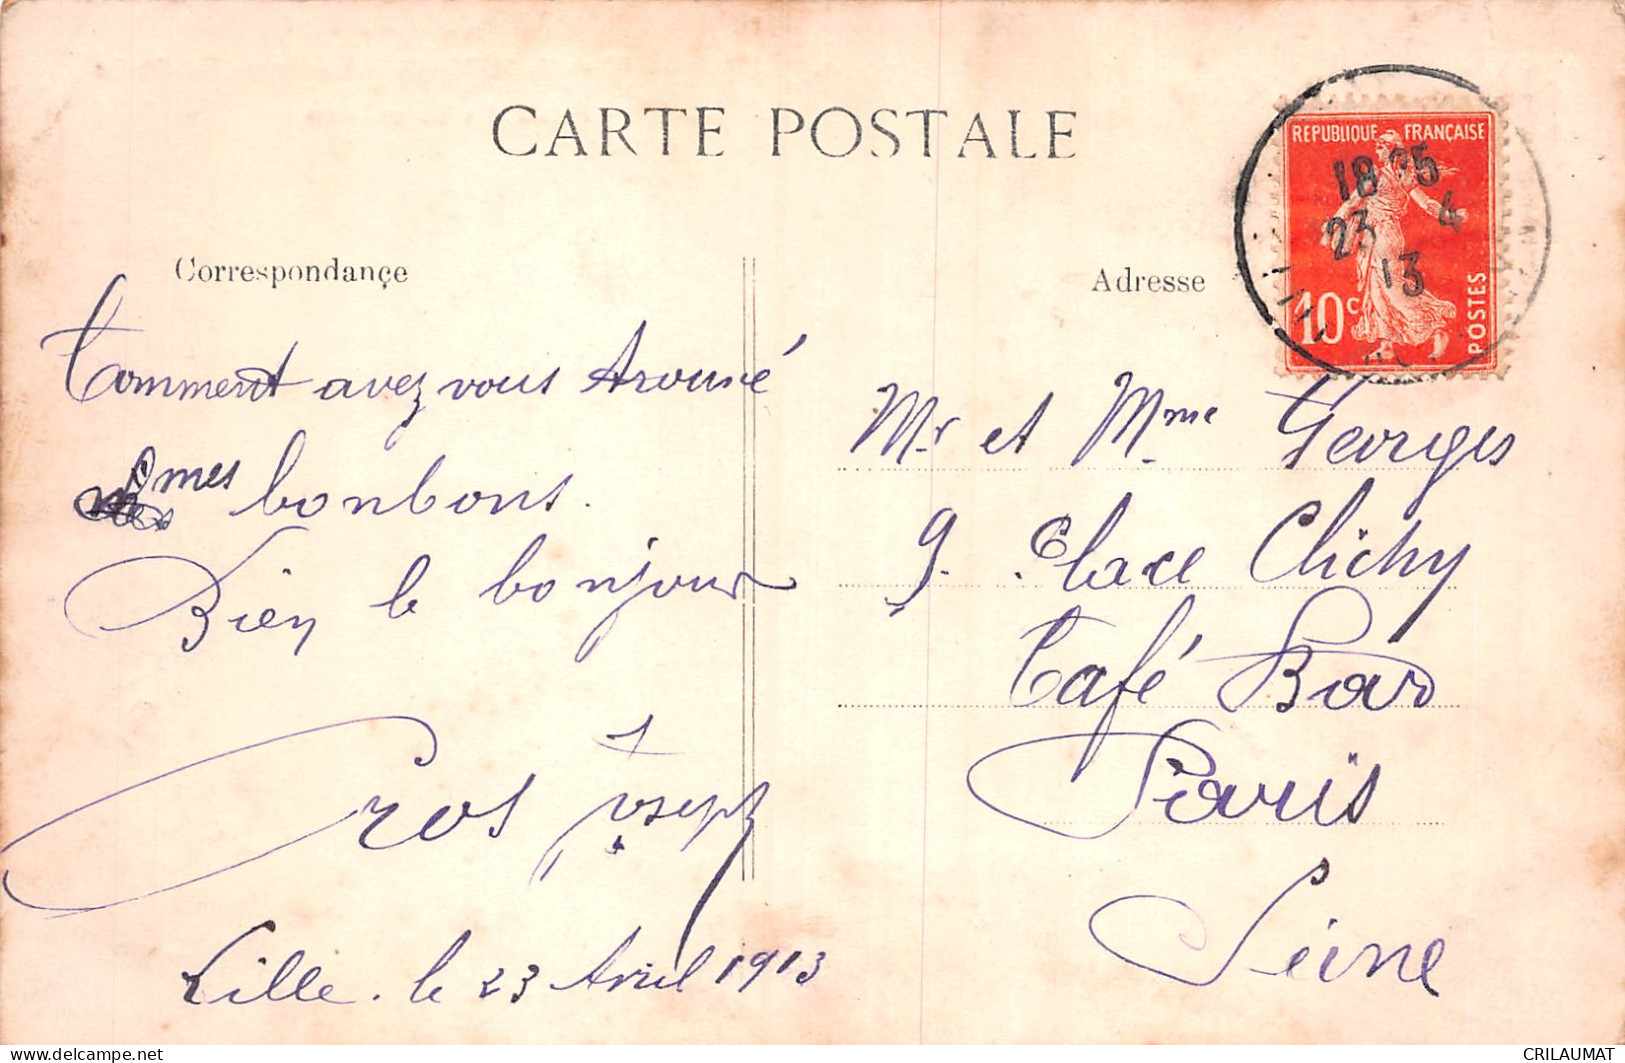 CARTE POSTALE
RÉPUBLIQUE FRANÇAISE
10c
POSTES
18 25
23 4
13
Correspondançe
Adresse
Comment avez vous trouvé
mes bonbons.
Bien le bonjour
Cros Joseph
Lille. le 23 Avril 1913
Mr et Mme Georges
9. Place Clichy
Café Bar
Paris
Seine
delcampe.net
CRILAUMAT